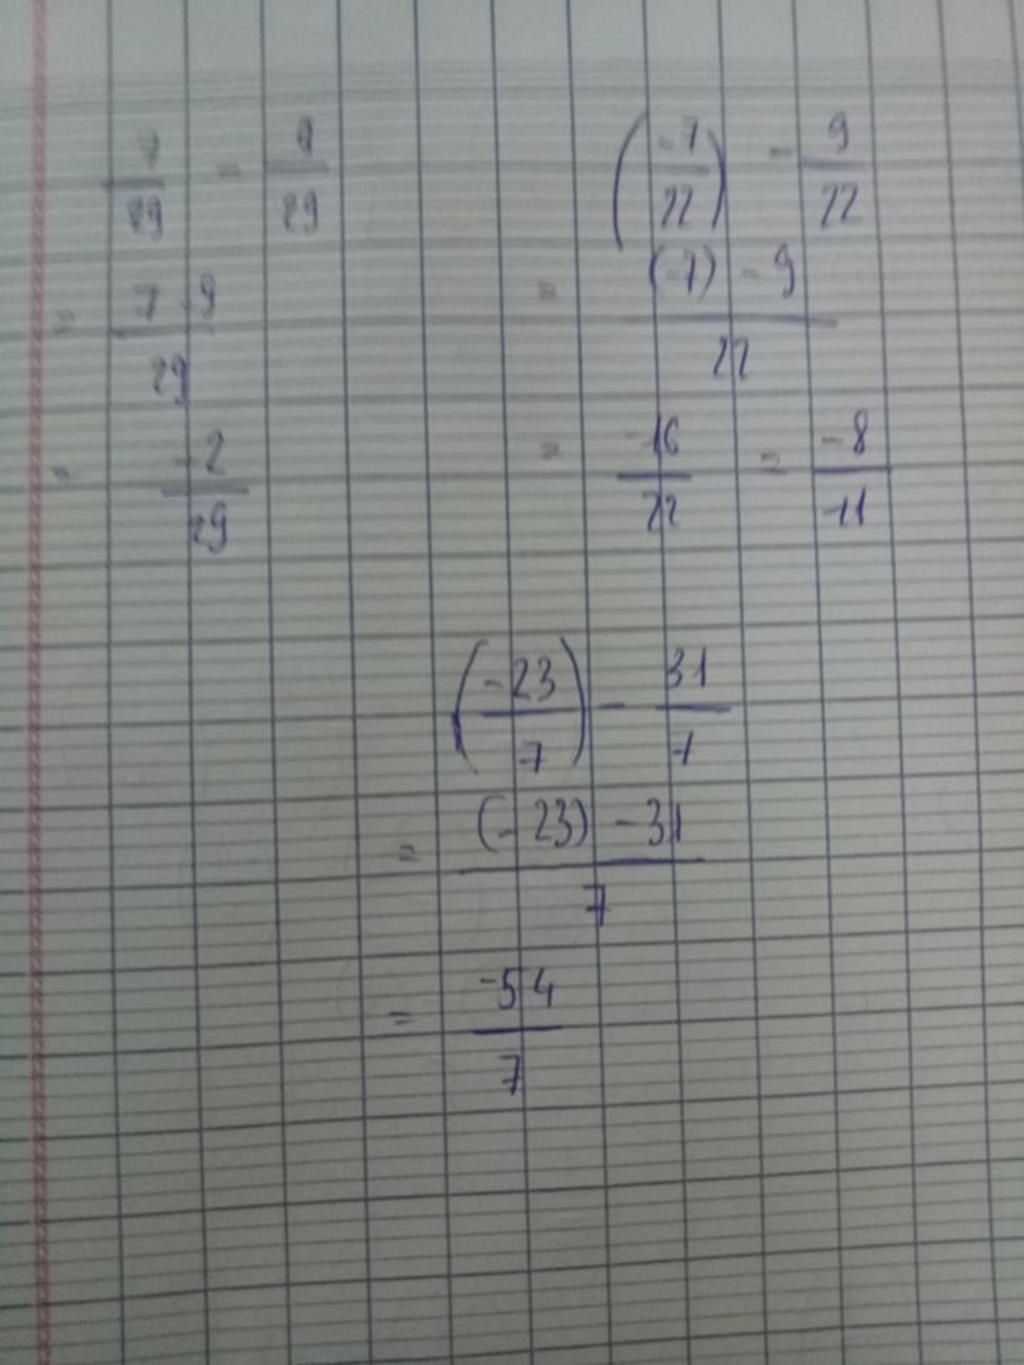 7/29 - 9/29
= 7 - 9 / 29
= -2/29
(-7/22) - 9/22
= (-7) - 9 / 22
= -16/22 = -8/11
(-23/7) - 31/7
= (-23) - 31 / 7
= -54/7